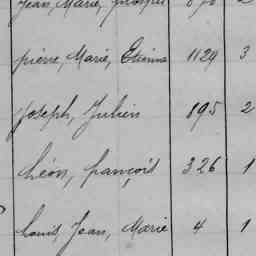 Jean, Marie, Prosper
Pierre, Marie, Etienne 1129 3
Joseph, Julien 895 2
Léon, François 326 1
Louis, Jean, Marie 4 1